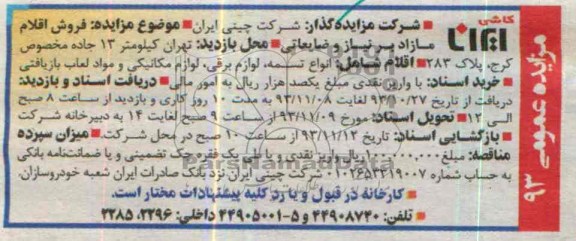 مزایده عمومی ۹۳
کاشی ایرانا
شرکت مزایده‌گذار: شرکت چینی ایران ■ موضوع مزایده: فروش اقلام
مازاد بر نیاز و ضایعاتی ■ محل بازدید: تهران کیلومتر ۱۳ جاده مخصوص
کرج، پلاک ۲۸۳ ■ اقلام شامل: انواع تسمه، لوازم برقی، لوازم مکانیکی و مواد لعاب بازیافتی
■ خرید اسناد: با واریز نقدی مبلغ یکصد هزار ریال به امور مالی ■ دریافت اسناد و بازدید:
دریافت از تاریخ ۹۳/۱۰/۲۷ لغایت ۹۳/۱۱/۰۸ به مدت ۱۰ روز کاری و بازدید از ساعت ۸ صبح
الی ۱۲ ■ تحویل اسناد: مورخ ۹۳/۱۱/۰۹ از ساعت ۹ صبح لغایت ۱۴ به دبیرخانه شرکت
■ بازگشایی اسناد: تاریخ ۹۳/۱۱/۱۲ از ساعت ۱۰ صبح در محل شرکت. ■ میزان سپرده
مناقصه: مبلغ ریال واریز نقدی و یا طی یک فقره چک تضمینی و یا ضمانتنامه بانکی
به حساب شماره ۰۱۰۲۶۵۳۲۱۹۰۰۷ شرکت چینی ایران نزد بانک صادرات ایران شعبه خودروسازان.
■ کارخانه در قبول و یا رد کلیه پیشنهادات مختار است.
■ تلفن: ۴۴۹۰۸۷۴۰ و ۵-۴۴۹۰۵۰۰۱ داخلی: ۲۲۹۶، ۲۲۸۵